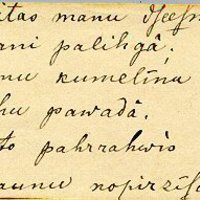 itas manu
ani palihgâ.
nu kumeliņu
hu pawadâ.
to pahrrahwis
aunu nopirzis